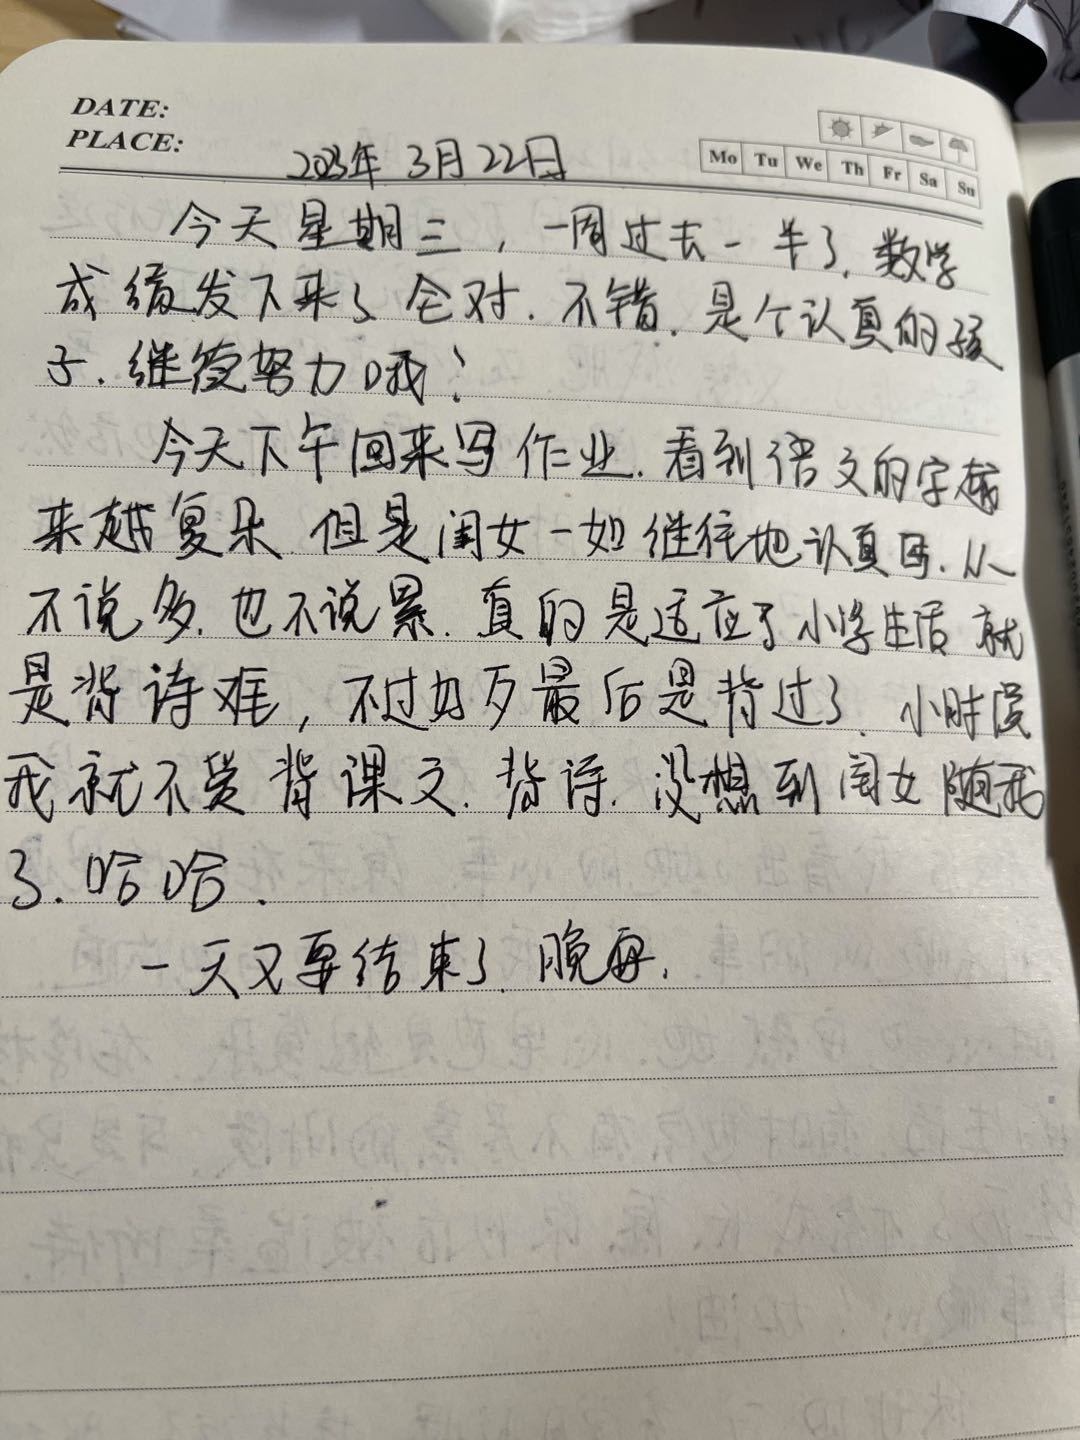 DATE:
PLACE:
Mo Tu We Th Fr Sa Su
2023年 3月22日
今天星期三，一周过去一半了.数学
成绩发下来了全对.不错.是个认真的孩
子.继续努力哦！
今天下午回来写作业.看到语文的字越
来越复杂 但是闺女一如继往地认真写.从
不说多.也不说累.真的是适应了小学生活 就
是背诗难，不过好歹最后是背过了.小时候
我就不爱背课文.背诗.没想到闺女随我
了.哈哈.
一天又要结束了.晚安.